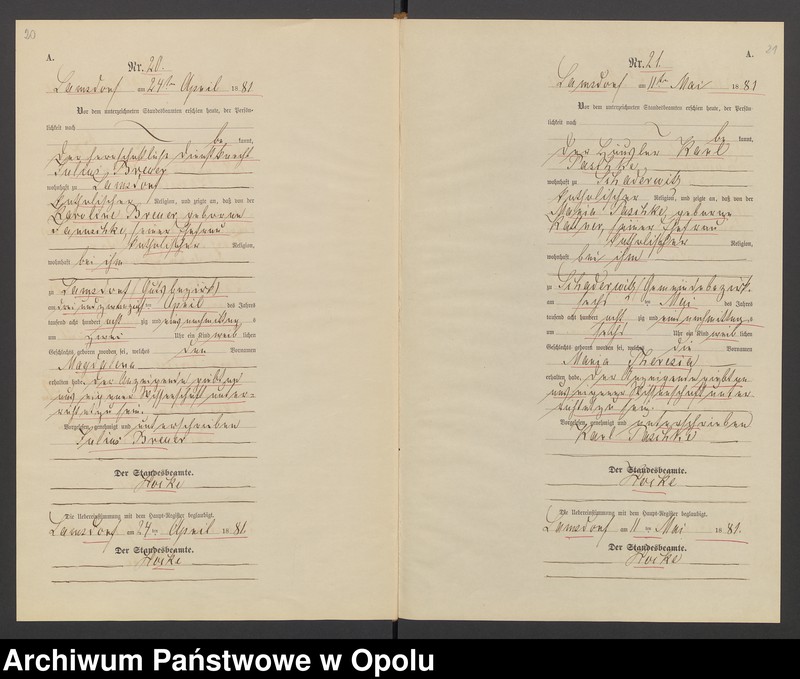 20
A.
Nr. 20.
Lamsdorf am 24ten April 1881
Vor dem unterzeichneten Standesbeamten erschien heute, der Persön-
lichkeit nach
be kannt,
der herrschaftliche Dienstknecht
Julius Brener
wohnhaft zu Lamsdorf
katholischer Religion, und zeigte an, daß von der
Caroline Brener geborne
seiner Ehefrau
katholischer Religion,
wohnhaft bei ihm
zu Lamsdorf Gutsbezirk
am drei und zwanzigsten April des Jahres
tausend acht hundert acht zig und eins nachmittags
um zwei Uhr ein Kind weib lichen
Geschlechts geboren worden sei, welches den Vornamen
Magdalena
erhalten habe. Der Anzeigende giebt an
aus eigener Wissenschaft unter-
richtet zu sein.
Vorgelesen, genehmigt und unterschrieben
Julius Brener
Der Standesbeamte.
Hocke
Die Uebereinstimmung mit dem Haupt-Register beglaubigt.
Lamsdorf am 24ten April 1881.
Der Standesbeamte.
Hocke
21
A.
Nr. 21.
Lamsdorf am 11ten Mai 1881
Vor dem unterzeichneten Standesbeamten erschien heute, der Persön-
lichkeit nach
be kannt,
der Häusler Karl
Paschke
wohnhaft zu Schaderwitz
katholischer Religion, und zeigte an, daß von der
Maria Paschke, geborne
seiner Ehefrau
katholischer Religion,
wohnhaft bei ihm
zu Schaderwitz Gemeindebezirk
am sechs ten Mai des Jahres
tausend acht hundert acht zig und eins nachmittags
um sechs Uhr ein Kind weib lichen
Geschlechts geboren worden sei, welches die Vornamen
Maria Theresia
erhalten habe. Der Anzeigende giebt an
aus eigener Wissenschaft unter
richtet zu sein.
Vorgelesen, genehmigt und unterschrieben
Karl Paschke
Der Standesbeamte.
Hocke
Die Uebereinstimmung mit dem Haupt-Register beglaubigt.
Lamsdorf am 11ten Mai 1881.
Der Standesbeamte.
Hocke
Archiwum Państwowe w Opolu